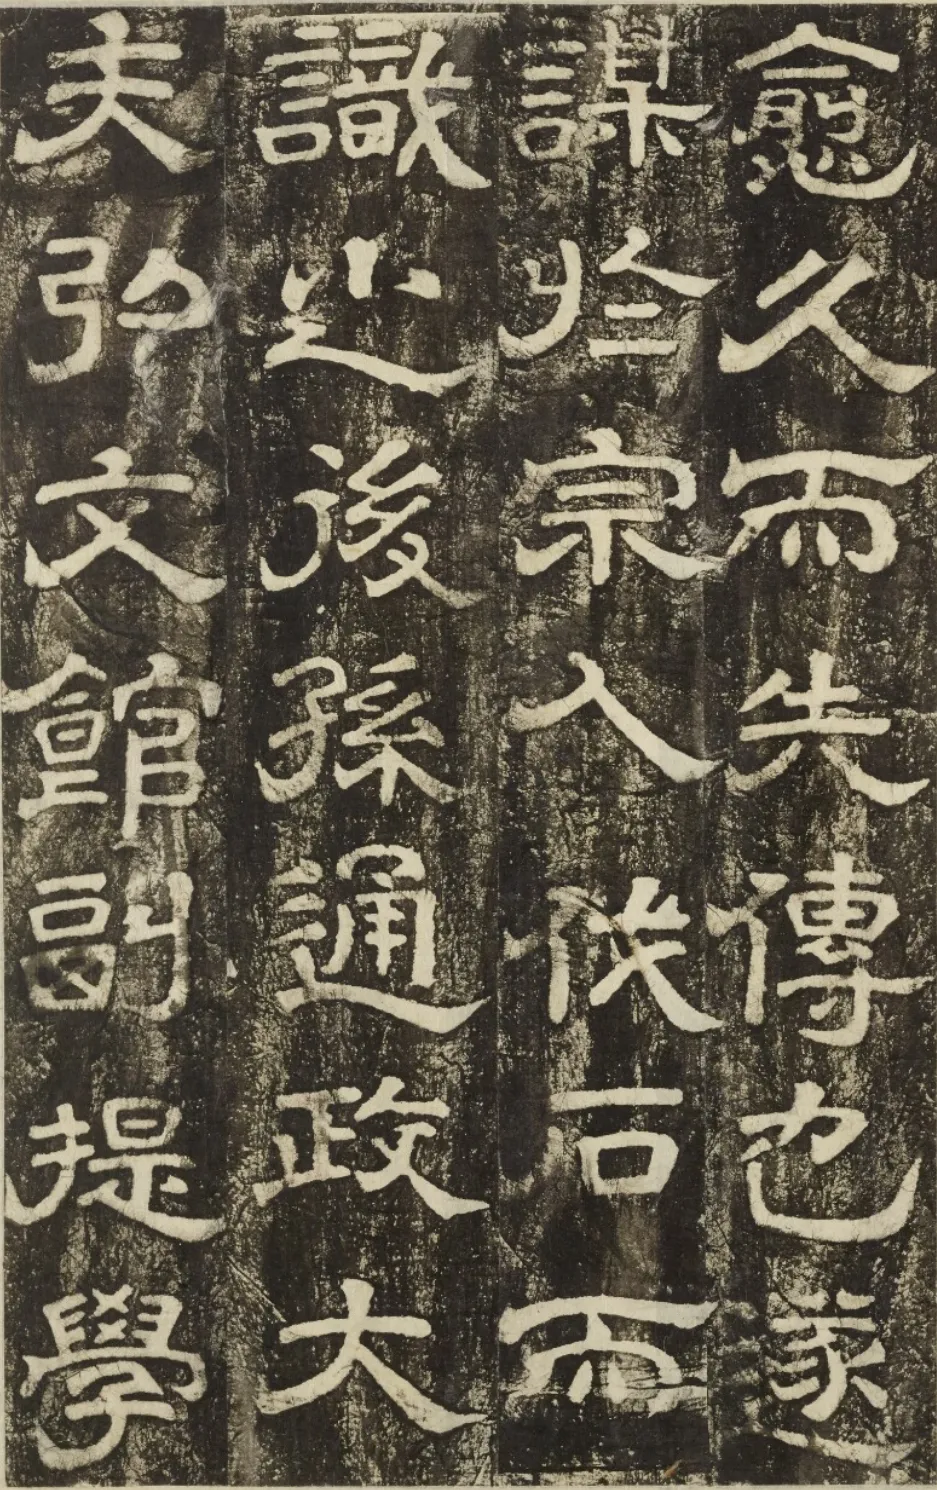 愈久而失傳也遂
謀於宗人伐石而
識之後孫通政大
夫弘文館副提學